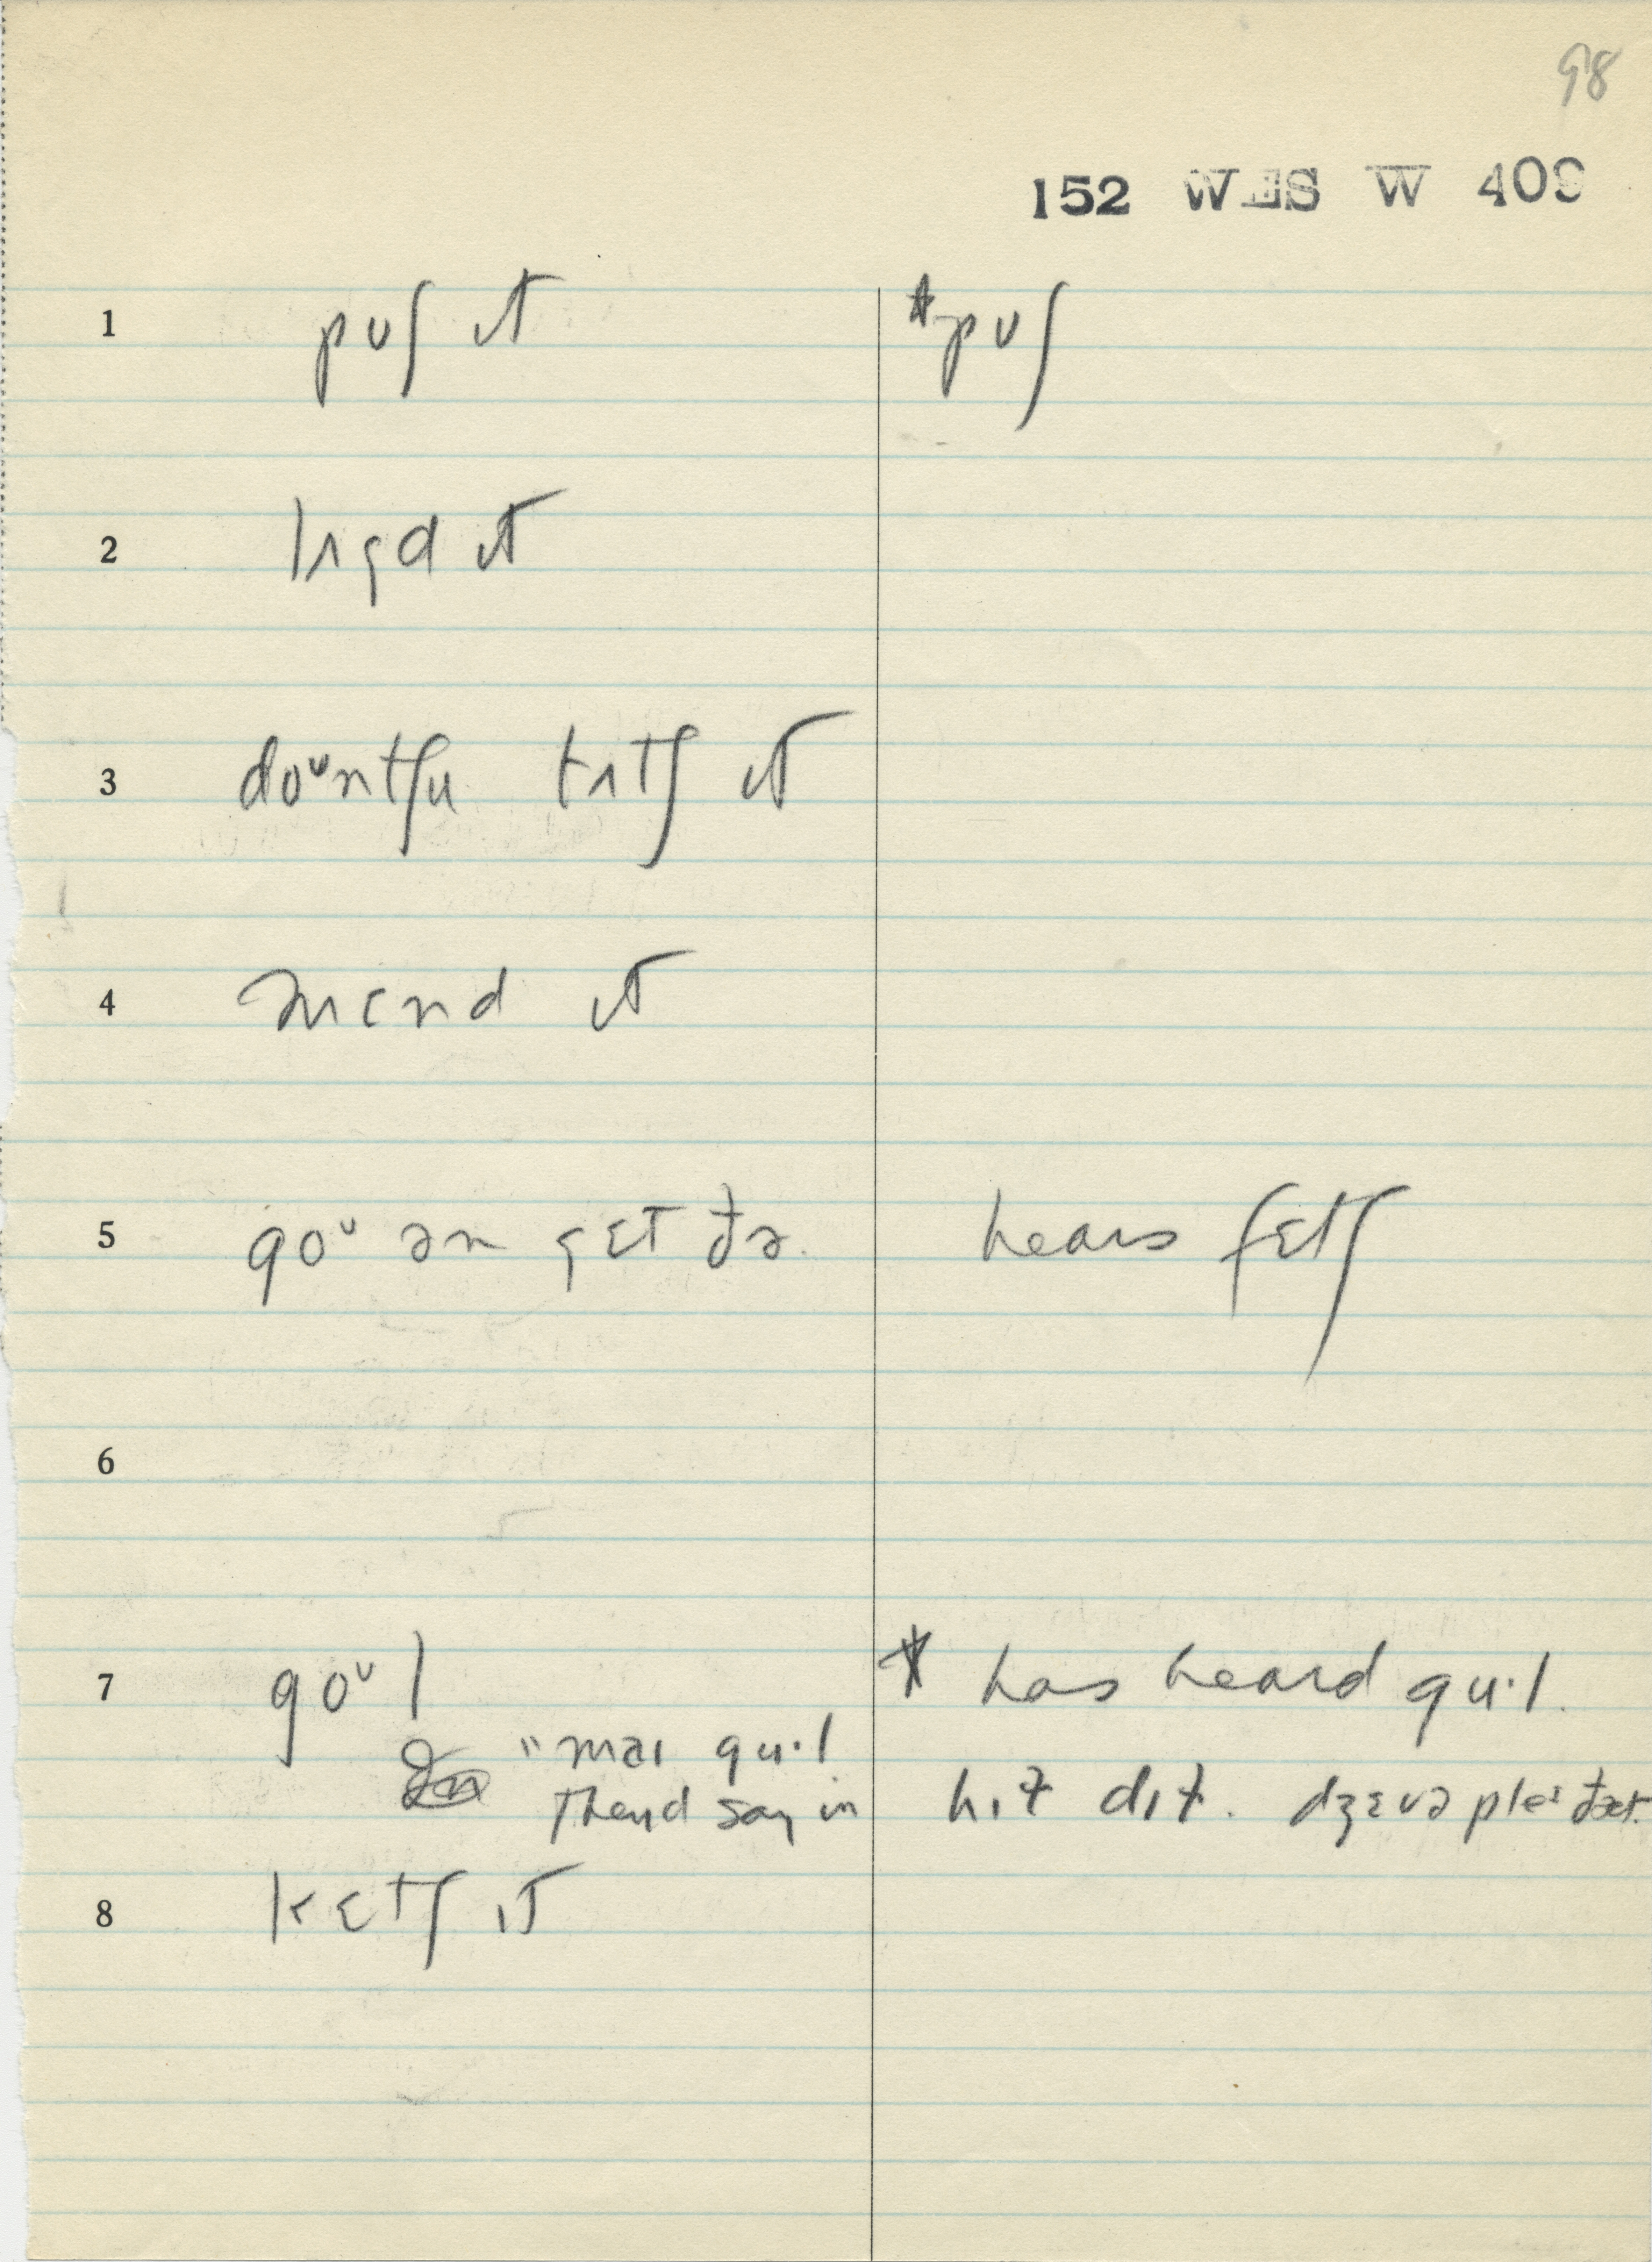 98
152 WES W 409
1 pʊʃ ɪt *pʊʃ
2 lʌgd ɪt
3 doᶷntʃu tʌtʃ ɪt
4 mɛnd ɪt
5 goᶷ ən gɛt ðə hears fɛtʃ
6
7 goᶷl * has heard gu·l.
"maɪ gu·l hɪt dɪt. dʒɛvə pleɪ ðæt.
They'd say in
8 kɛtʃ ɪt